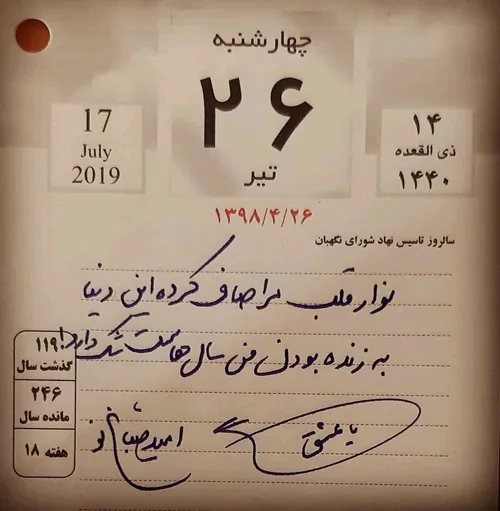 چهارشنبه
۲۶
تیر
17
July
2019
۱۴
ذی القعده
۱۴۴۰
۱۳۹۸/۴/۲۶
سالروز تاسیس نهاد شورای نگهبان
نوار قلب مرا صاف کرده این دنیا
به زنده بودن من سال هاست شک دارد!
۱۱۹
گذشت سال
۲۴۶
مانده سال
هفته ۱۸
یا عشق
امید صباغ نو